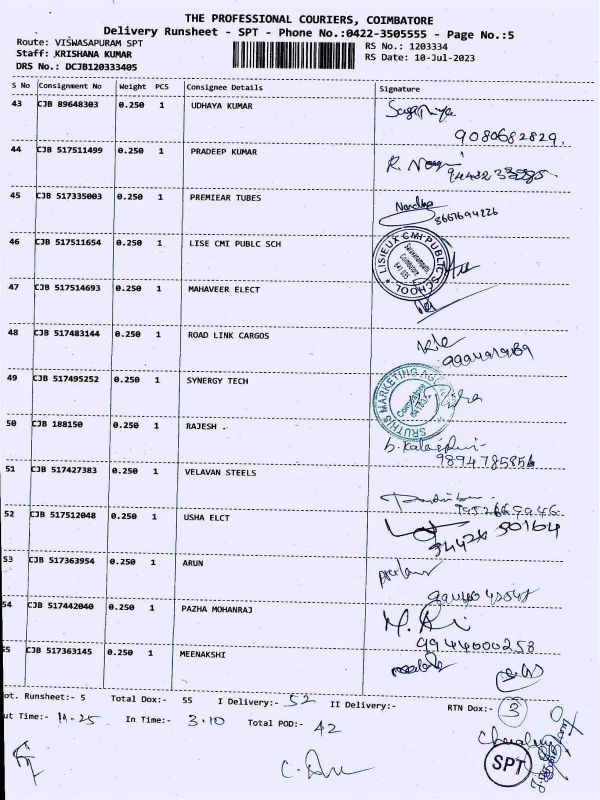 THE PROFESSIONAL COURIERS, COIMBATORE
Delivery Runsheet - SPT - Phone No.:0422-3505555 - Page No.:5
Route: VISWASAPURAM SPT
RS No.: 1203334
Staff: KRISHANA KUMAR
RS Date: 10-Jul-2023
DRS No.: DCJB120333405
S No Consignment No Weight PCS Consignee Details Signature
43 CJB 89648303 0.250 1 UDHAYA KUMAR
9080682829.
44 CJB 517511499 0.250 1 PRADEEP KUMAR
45 CJB 517335003 0.250 1 PREMIEAR TUBES
8667694226
46 CJB 517511654 0.250 1 LISE CMI PUBLC SCH
LISIEUX CMI PUBLIC SCHOOL
47 CJB 517514693 0.250 1 MAHAVEER ELECT
48 CJB 517483144 0.250 1 ROAD LINK CARGOS
49 CJB 517495252 0.250 1 SYNERGY TECH
SRUTHIS MARKETING
Coimbatore
50 CJB 188150 0.250 1 RAJESH .
9874785856
51 CJB 517427383 0.250 1 VELAVAN STEELS
52 CJB 517512048 0.250 1 USHA ELCT
53 CJB 517363954 0.250 1 ARUN
54 CJB 517442040 0.250 1 PAZHA MOHANRAJ
9944000258
55 CJB 517363145 0.250 1 MEENAKSHI
ot. Runsheet:- 5 Total Dox:- 55 I Delivery:- 52 II Delivery:- RTN Dox:- 3
ut Time:- 11.25 In Time:- 3.10 Total POD:- 42
SPT